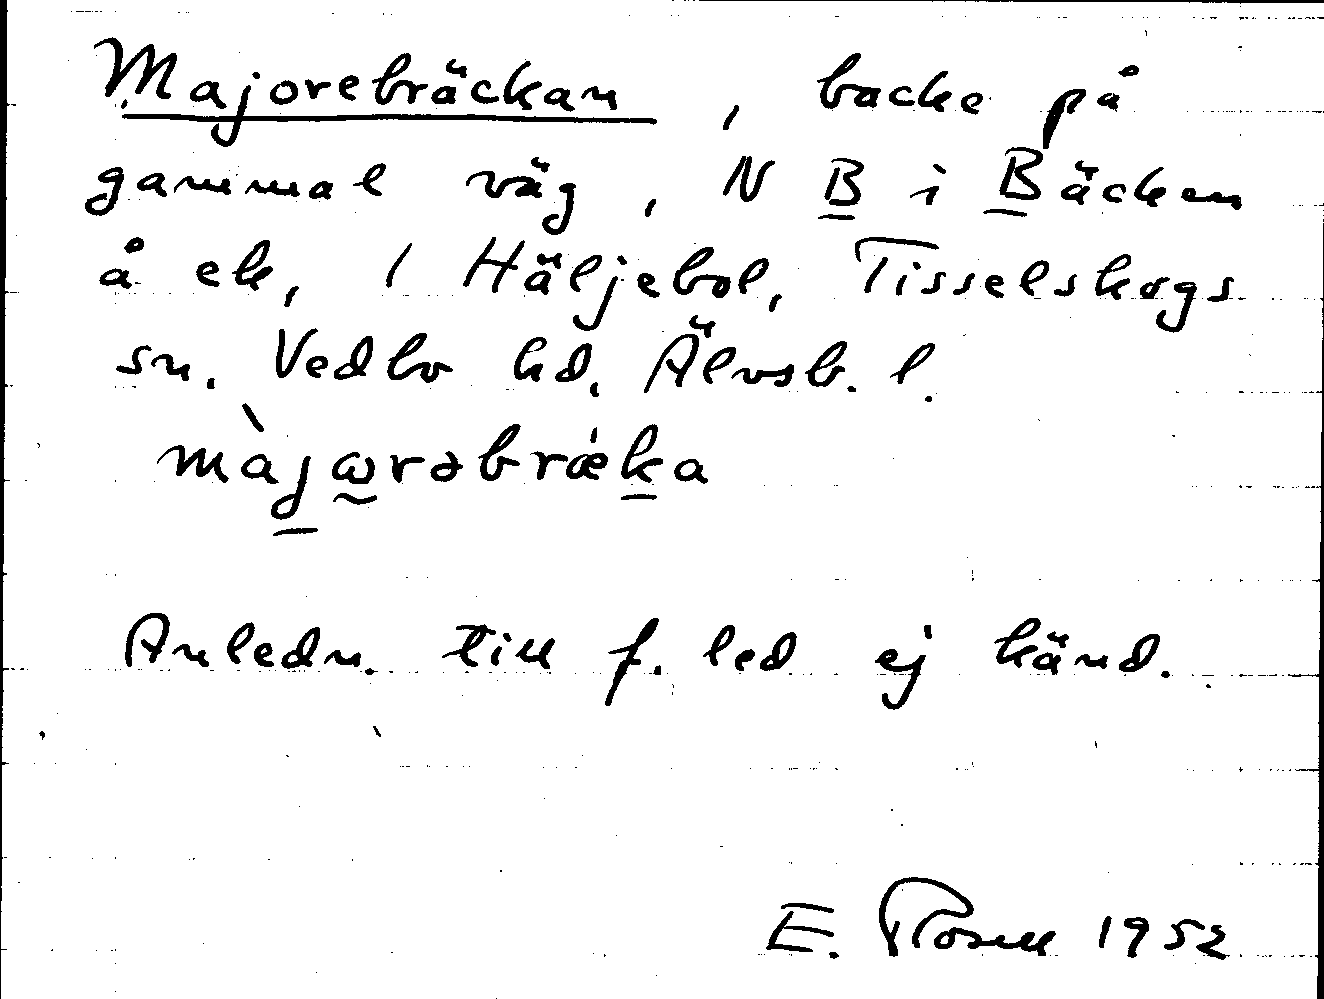 Majorebräckan, backe på
gammal väg, N B i Bäcken
å ek, 1 Häljebol, Tisselskogs
sn. Vedbo hd. Älvsb. l.
màjω̰rəbrǽka
Anledn. till f. led ej känd.
E. Rosell 1952